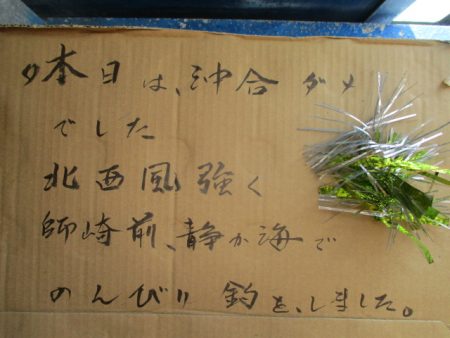 本日は、沖合ダメ
でした
北西風強く
師崎前、静か海で
のんびり釣を、しました。